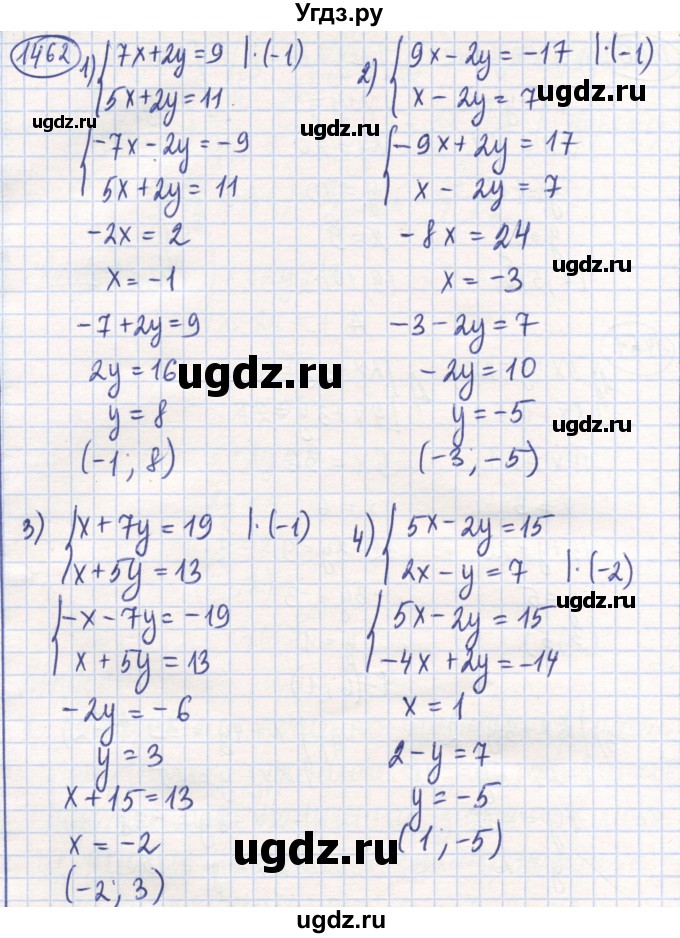 Угдз.ру
1462
1) 7x+2y=9 |·(-1)
5x+2y=11
ugdz.ru
-7x-2y=-9
5x+2y=11
ugdz.ru
-2x=2
x=-1
-7+2y=9
2y=16
ugdz.ru
y=8
(-1; 8)
2) 9x-2y=-17 |·(-1)
x-2y=7
ugdz.ru
ugdz.ru
-9x+2y=17
x-2y=7
-8x=24
ugdz.ru
x=-3
-3-2y=7
-2y=10
y=-5
ugdz.ru
(-3; -5)
3) x+7y=19 |·(-1)
x+5y=13
ugdz.ru
-x-7y=-19
x+5y=13
-2y=-6
y=3
x+15=13
x=-2
(-2; 3)
4) 5x-2y=15
2x-y=7 |·(-2)
ugdz.ru
5x-2y=15
-4x+2y=-14
x=1
2-y=7
y=-5
ugdz.ru
(1; -5)
ugdz.ru
ugdz.ru